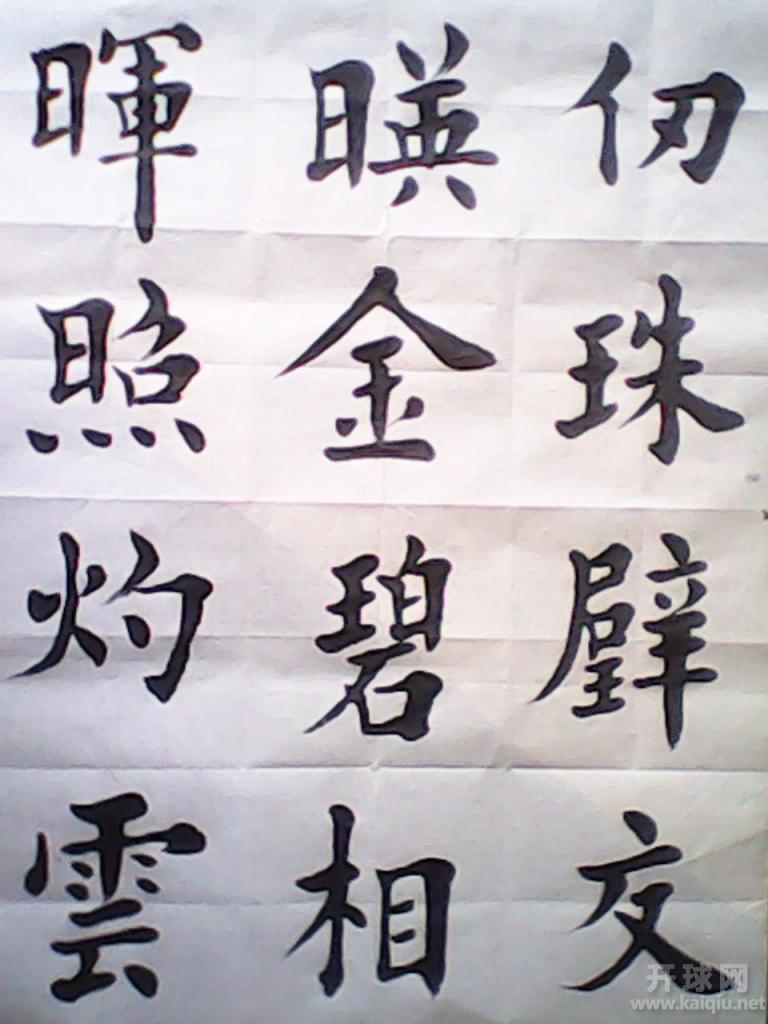 仞珠璧交
暎金碧相
暉照灼雲
开球网
www.kaiqiu.net